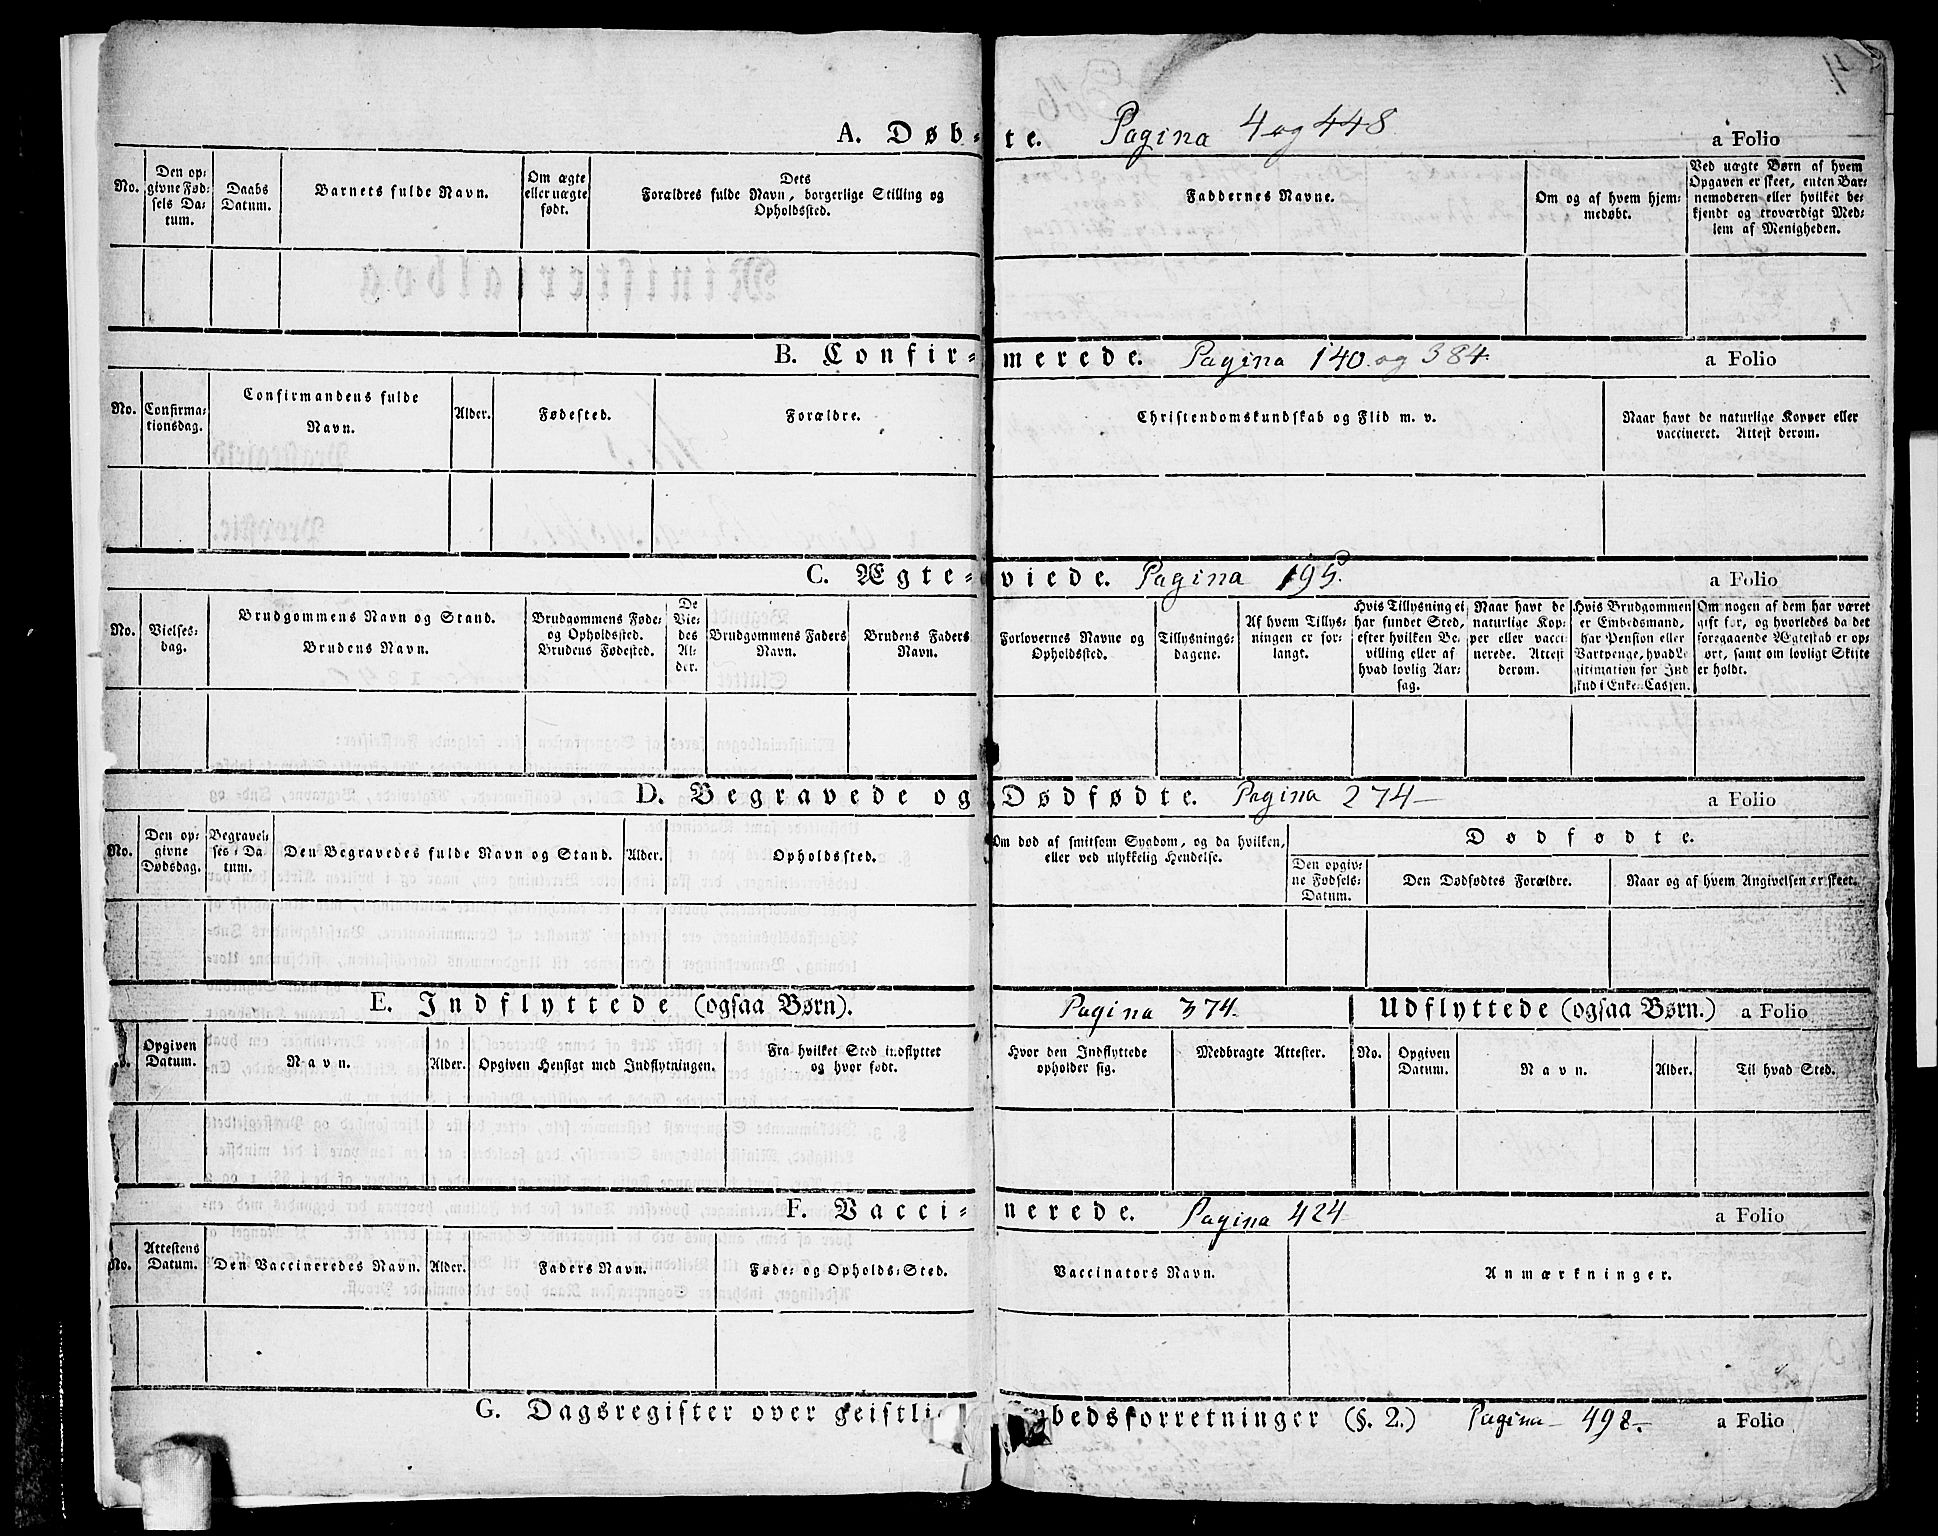 A. Døb-te. Pagina 4 og 448 a Folio
No.
Den op-
givne Fød-
sels Da-
tum.
Daabs
Datum.
Barnets fulde Navn.
Om ægte
eller uægte
født.
Dets
Forældres fulde Navn, borgerlige Stilling og
Opholdssted.
Faddernes Navne.
Om og af hvem hjem-
medøbt.
Ved uægte Børn af hvem
Opgaven er skeet, enten Bar-
nemoderen eller hvilket be-
kjendt og troværdigt Med-
lem af Menigheden.
B. Confir-merede. Pagina 140. og 384. a Folio
No.
Confirma-
tionsdag.
Confirmandens fulde
Navn.
Alder.
Fødested.
Forældre.
Christendomskundskab og Flid m. v.
Naar havt de naturlige Kopper eller
vaccineret. Attest derom.
C. Ægte-viede. Pagina 195. a Folio
No.
Vielses-
dag.
Brudgommens Navn og Stand.
Brudens Navn.
Brudgommens Føde-
og Opholdsted.
Brudens Fødested.
De
Vie-
des
Al-
der.
Brudgommens Faders
Navn.
Brudens Faders
Navn.
Forlovernes Navne og
Opholdssted.
Tillysnings-
dagene.
Af hvem Tillys-
ningen er for-
langt.
Hvis Tillysning ei
har fundet Sted,
efter hvilken Be-
villing eller af
hvad lovlig Aar-
sag.
Naar havt de
naturlige Kop-
per eller vacci-
nerede. Attest
derom.
Hvis Brudgommen
er Embedsmand,
har Pension eller
Vartpenge, hvad Le-
gitimation for Ind
skud i Enke-Cassen.
Om nogen af dem har været
gift før, og hvorledes da det
foregaaende Ægteskab er op-
ørt, samt om lovligt Skifte
er holdt.
D. Begravede og Dødfødte. Pagina 274 a Folio
No.
Den op-
givne
Dødsdag.
Begravel-
ses Da-
tum.
Den Begravedes fulde Navn og Stand.
Alder.
Opholdssted.
Om død af smitsom Sygdom, og da hvilken,
eller ved ulykkelig Hendelse.
Dødfødte.
Den opgiv-
ne Fødsels-
Datum.
Den Dødfødtes Forældre.
Naar og af hvem Angivelsen er skeet.
E. Indflyttede (ogsaa Børn). Pagina 374. Udflyttede (ogsaa Børn.) a Folio
Opgiven
Datum.
Navn.
Alder.
Opgiven Hensigt med Indflytningen.
Fra hvilket Sted indflyttet
og hvor født.
Hvor den Indflyttede
opholder sig.
Medbragte Attester.
No.
Opgiven
Datum.
Navn.
Alder.
Til hvad Sted.
F. Vacci-nerede. Pagina 424 a Folio
No.
Attestens
Datum.
Den Vaccineredes Navn.
Alder.
Faders Navn.
Føde- og Opholds-Sted.
Vaccinators Navn.
Anmærkninger.
G. Dagsregister over geistli bedsforretninger (§. 2.) Pagina 498. a Folio